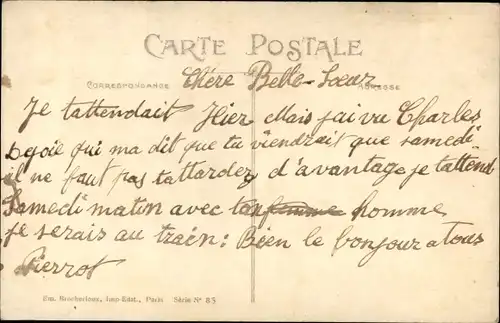 CARTE POSTALE
CORRESPONDANCE
ADRESSE
Chére Belle-Soeur
Je tattendait Hier Mais jai vu Charles
qui ma dit que tu viendrait que samedi
il ne faut pas tattardez d'avantage je tattend
Samedi matin avec ton femme homme
je serais au train: Bien le bonjour a Tous
Pierrot
Em. Rocherieux, Imp-Edit., Paris Série Nº 85